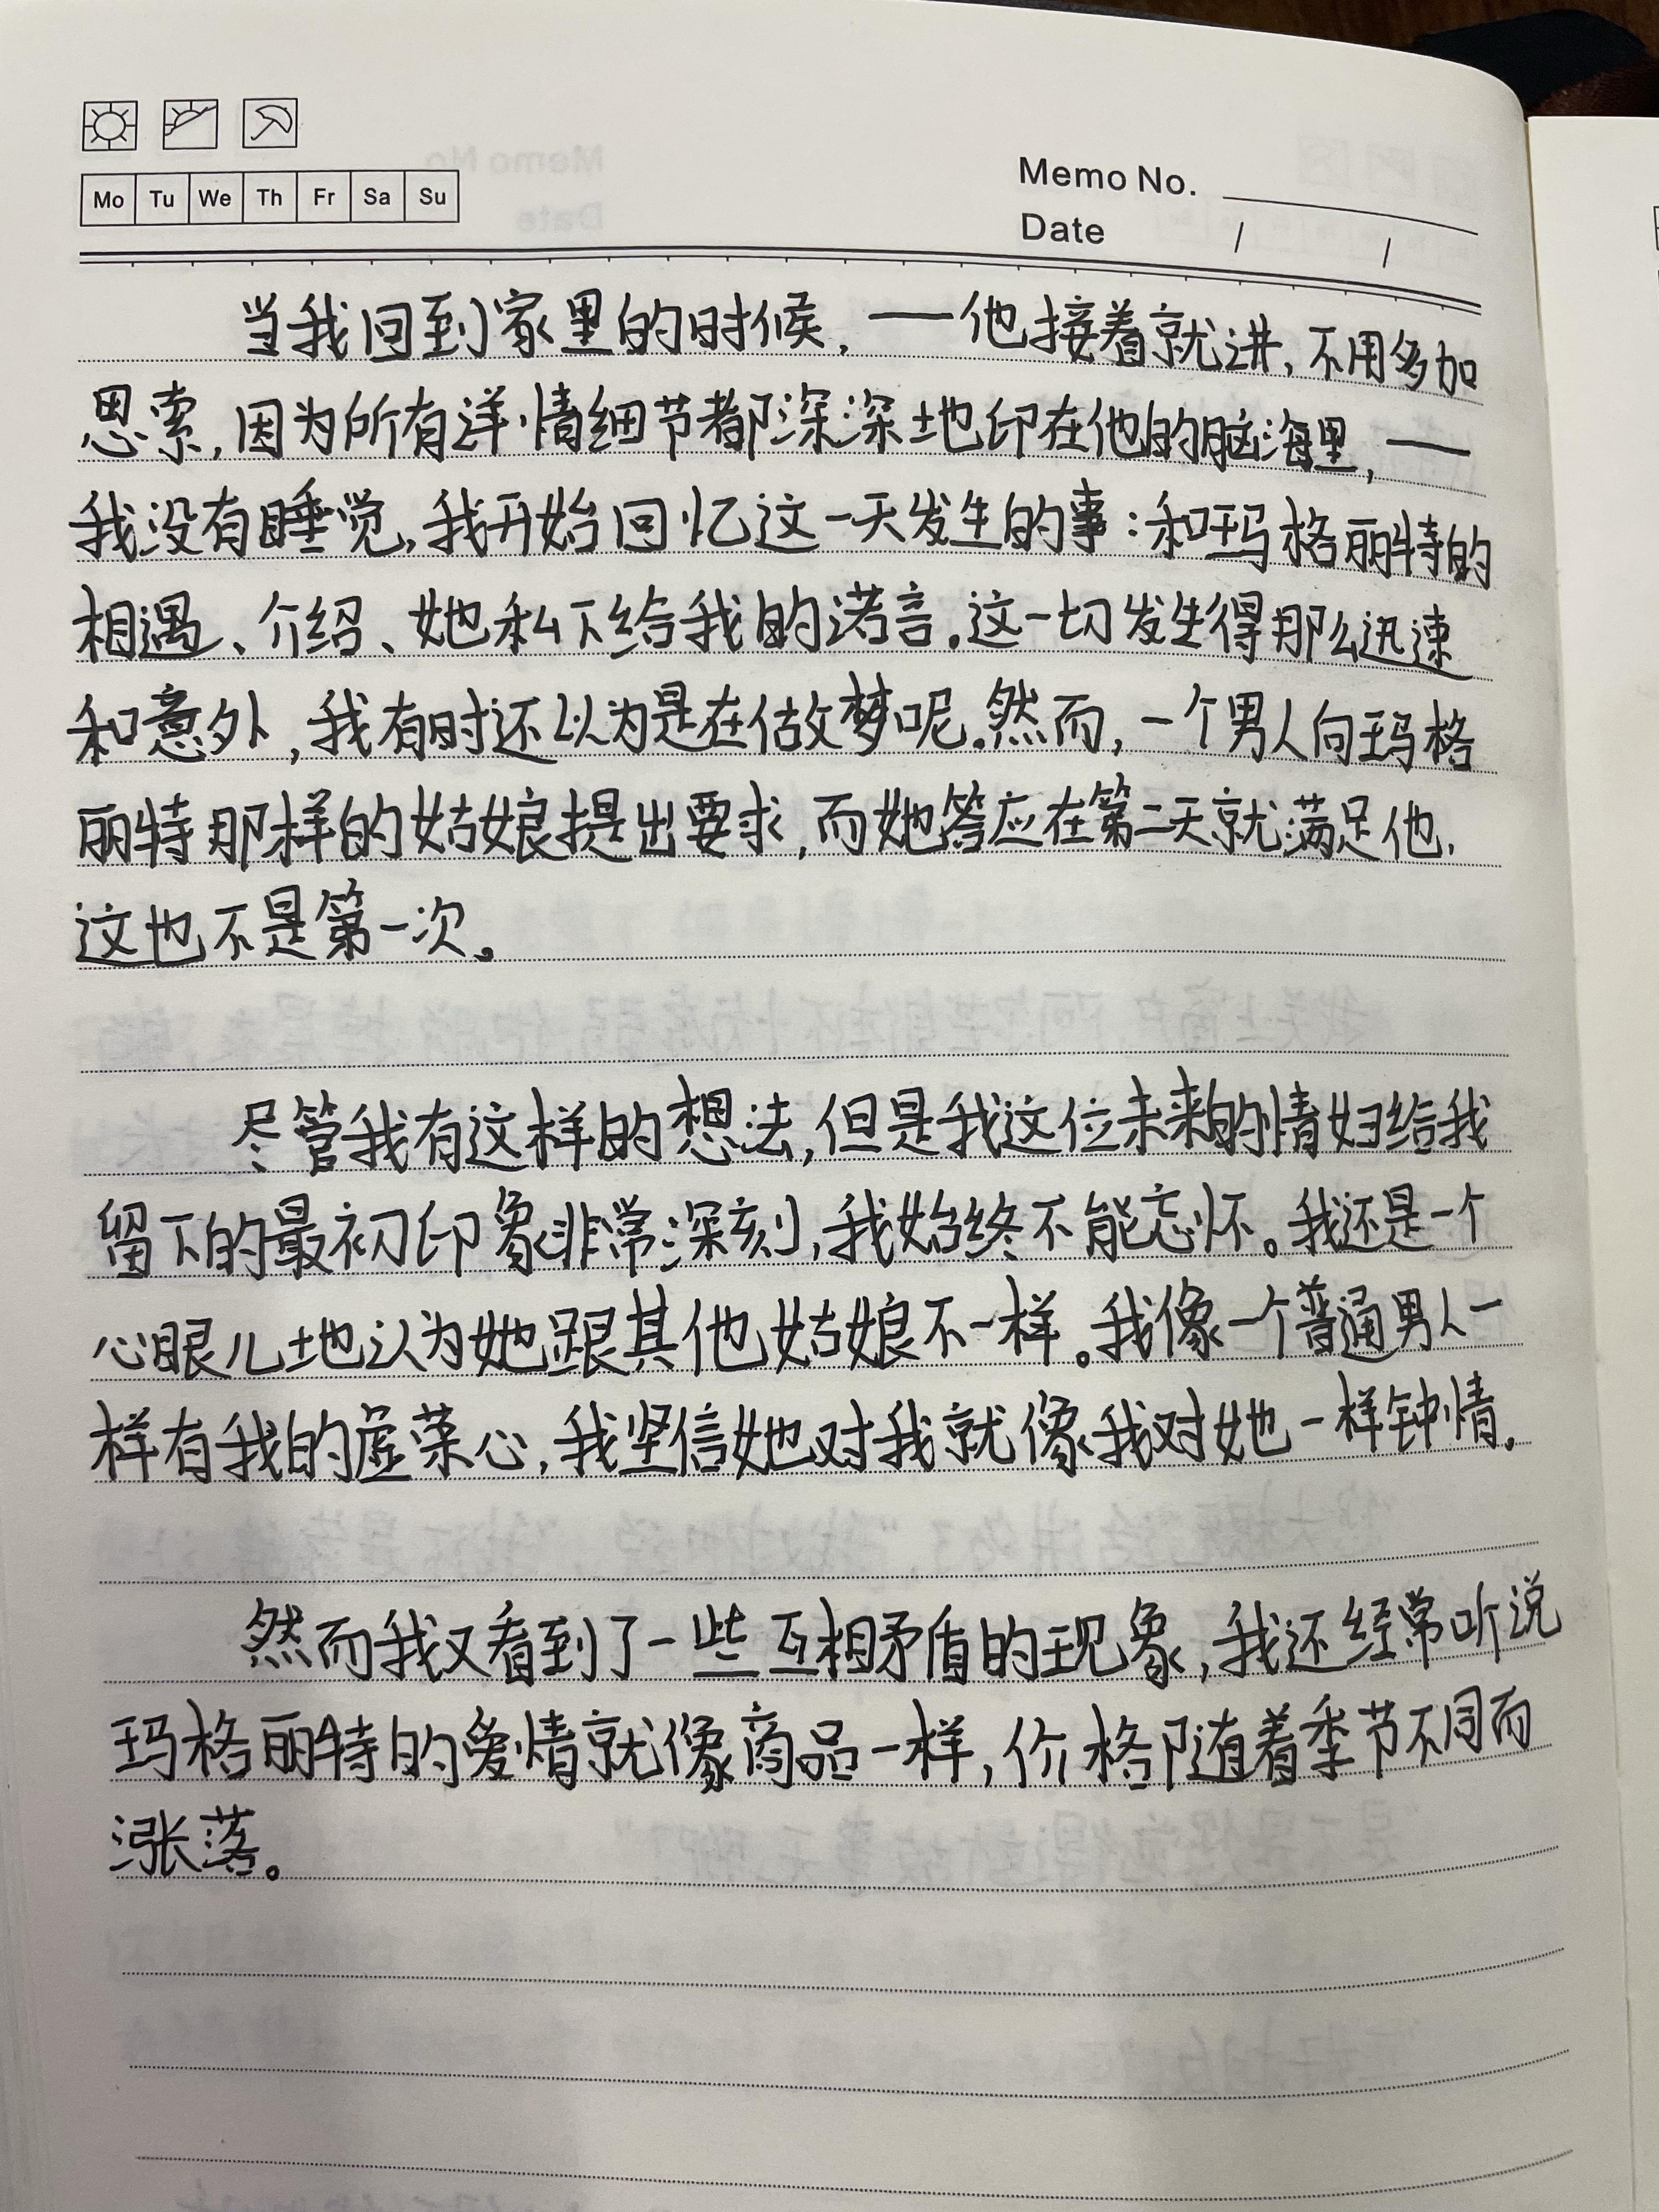 Mo Tu We Th Fr Sa Su
Memo No.
Date / /
当我回到家里的时候，——他接着就讲，不用多加
思索，因为所有详情细节都深深地印在他的脑海里，——
我没有睡觉，我开始回忆这一天发生的事：和玛格丽特的
相遇、介绍、她私下给我的诺言。这一切发生得那么迅速
和意外，我有时还以为是在做梦呢。然而，一个男人向玛格
丽特那样的姑娘提出要求，而她答应在第二天就满足他，
这也不是第一次。
尽管我有这样的想法，但是我这位未来的情妇给我
留下的最初印象非常深刻，我始终不能忘怀。我还是一个
心眼儿地认为她跟其他姑娘不一样。我像一个普通男人一
样有我的虚荣心，我坚信她对我就像我对她一样钟情。
然而我又看到了一些互相矛盾的现象，我还经常听说
玛格丽特的爱情就像商品一样，价格随着季节不同而
涨落。